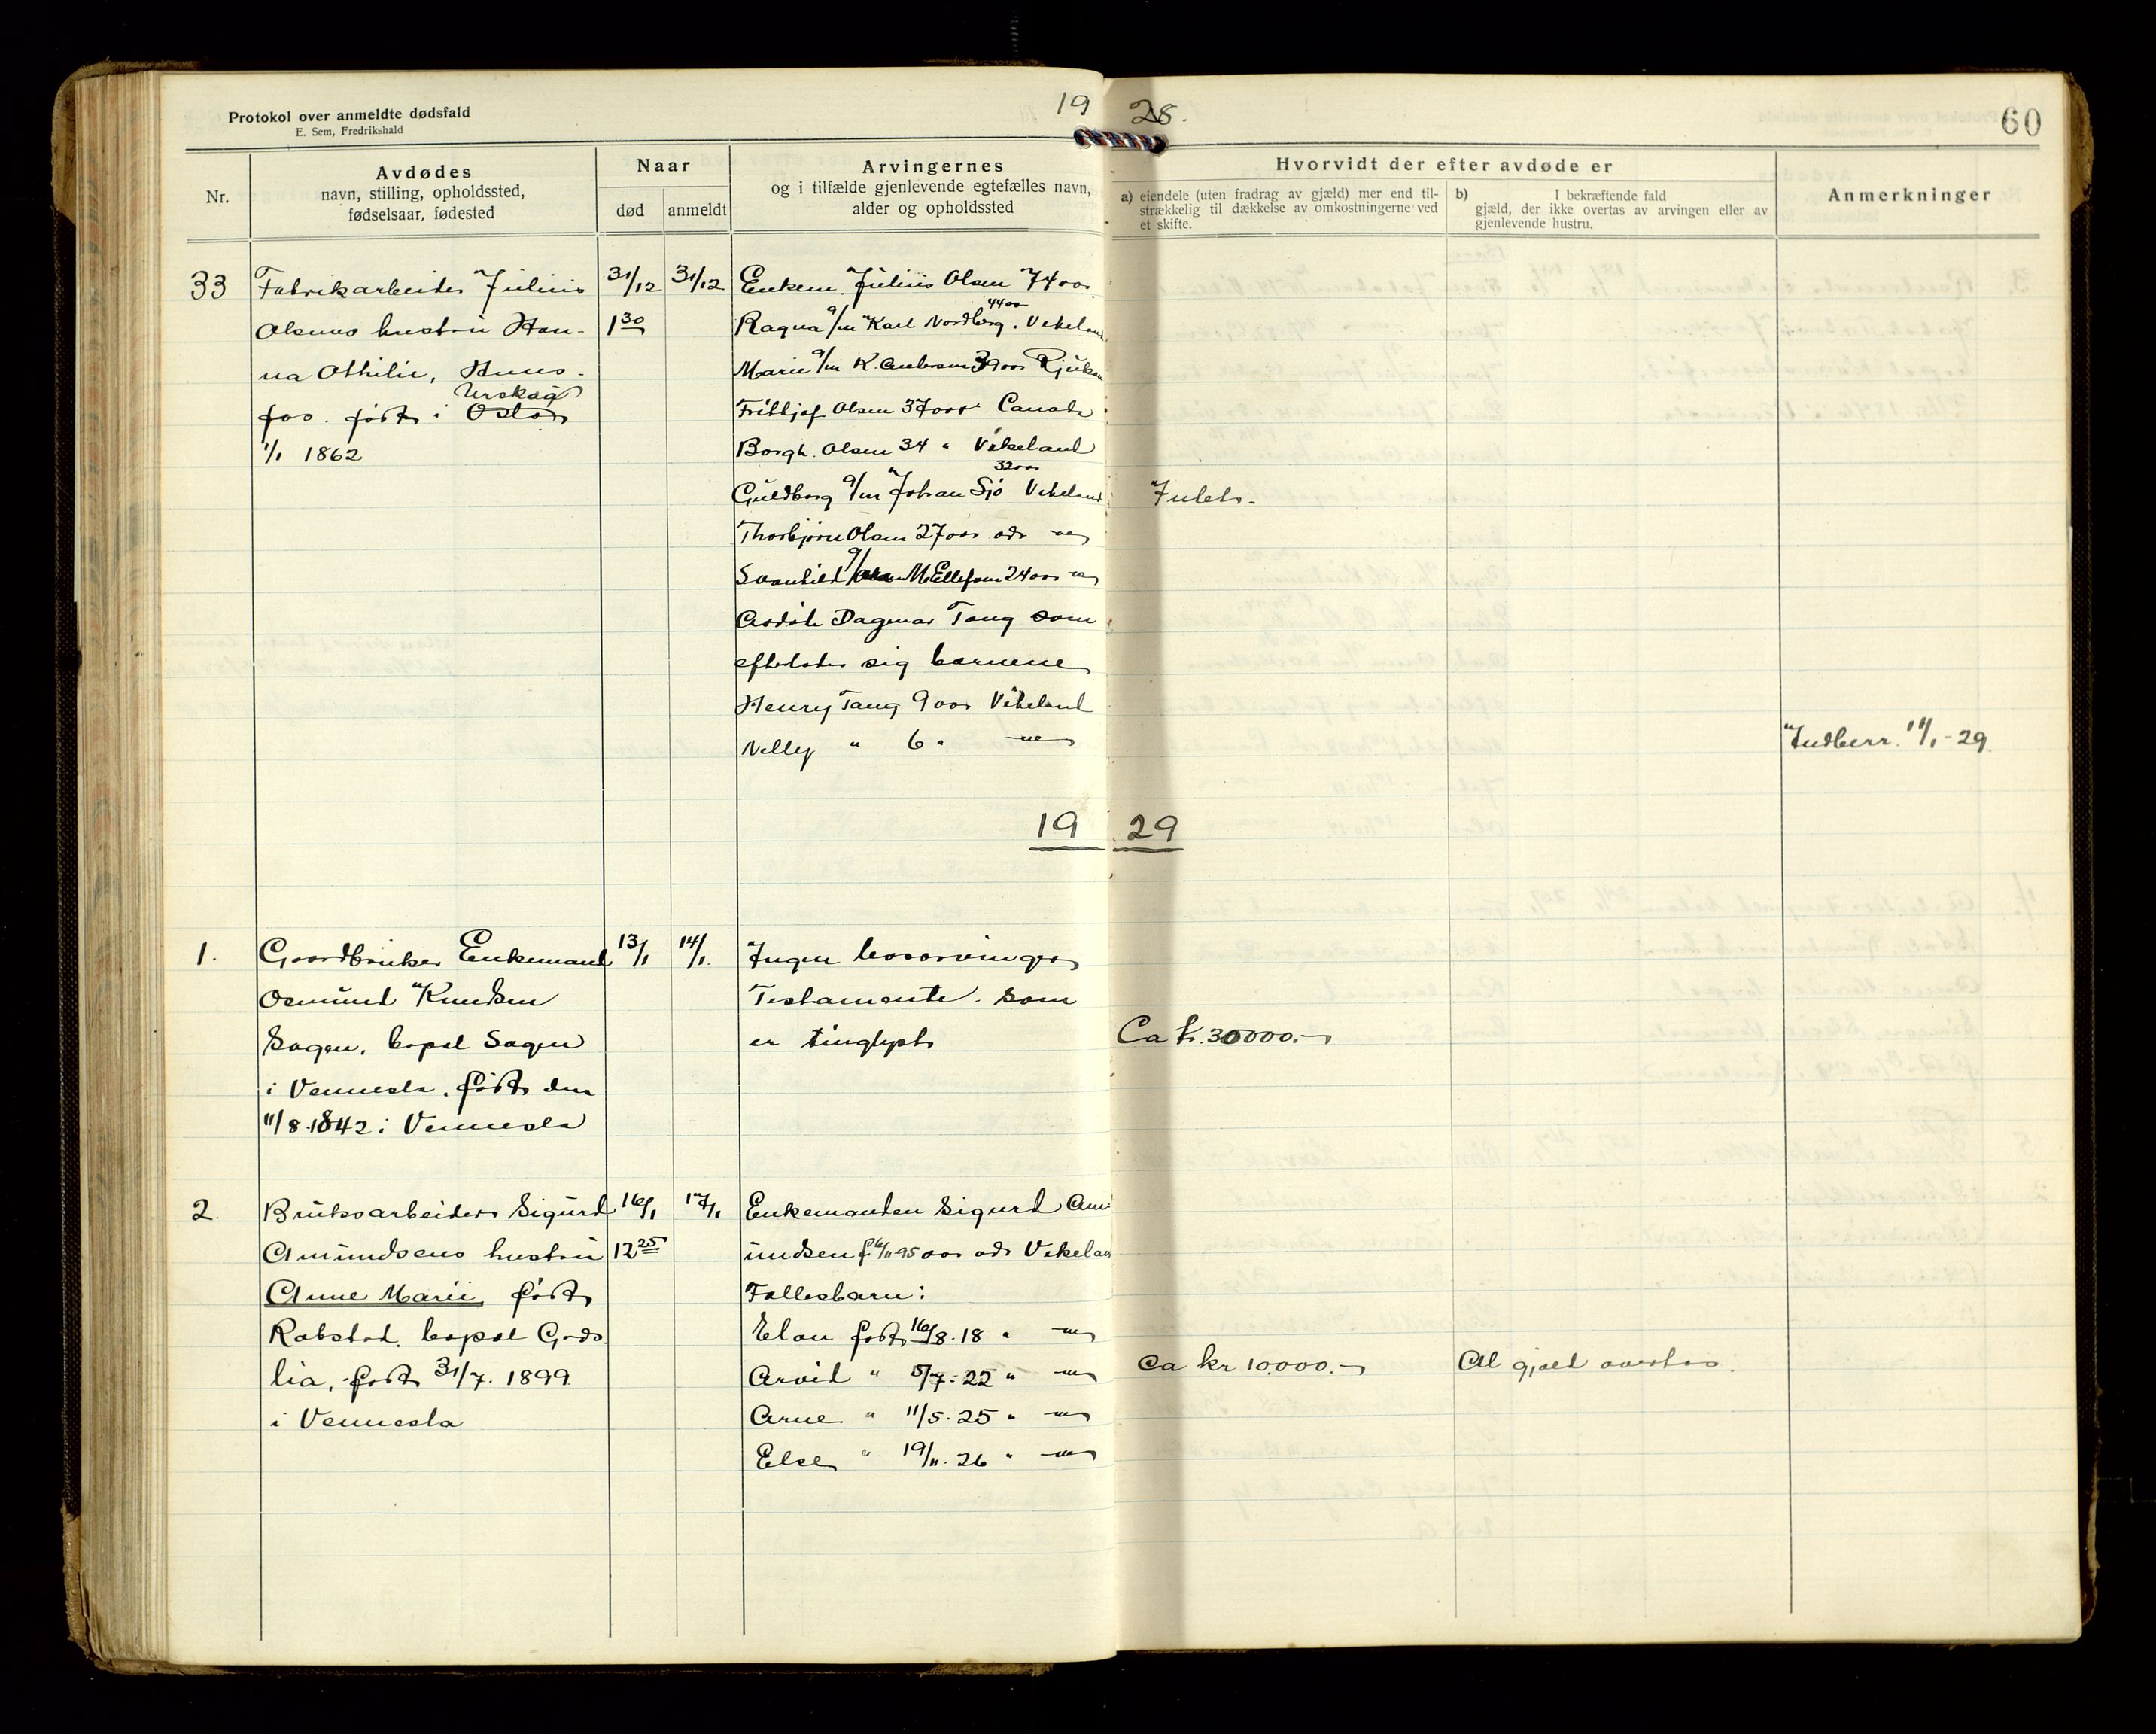 Protokol over anmeldte dødsfald
E. Sem, Fredrikshald
19 28.
60
Nr.
Avdødes
navn, stilling, opholdssted,
fødselsaar, fødested
Naar
død
anmeldt
Arvingernes
og i tilfælde gjenlevende egtefælles navn,
alder og opholdssted
Hvorvidt der efter avdøde er
a) eiendele (uten fradrag av gjæld) mer end til-
strækkelig til dækkelse av omkostningerne ved
et skifte.
b) I bekræftende fald
gjæld, der ikke overtas av arvingen eller av
gjenlevende hustru.
Anmerkninger
33
Fabrikarbeider Julius
Olsens hustru Han-
na Othilie, Huns-
fos. født i Oslo
Urskog
1/1 1862
31/12
1 30
31/12
Enkem. Julius Olsen 74 aar
Ragna g/m Karl Nordberg. Vikeland
44 aar
Marie g/m K. Andersen 39 aar Rjukan
Fritbjof Olsen 37 aar Canada
Borgh. Olsen 34 " Vikeland
Guldborg g/m Johan Sjö Vikeland
32 aar
Thorbjørn Olsen 27 aar ads
Svanhild g/m M Ellefsen 24 aar
Avdöde Dagmar Tang som
efterlater sig barnene
Henry Tang 9 aar Vikeland
Nelly " 6 "
Intet.
Indberr. 11/1 - 29.
19 29
1.
Gaardbruker Enkemand
Osmund Knudsen
Sagen, bopæl Sagen
i Vennesla. født den
11/8 1842 i Vennesla
13/1
14/1.
Ingen livsarvinger
Testamente. som
er tinglyst
Ca kr. 30000.-
2.
Bruksarbeider Sigurd
Amundsens hustru
Anne Marie, født
Robstad. bopæl Grds
lia, født 31/7. 1899
i Vennesla
16/1
12 25
17/1
Enkemanden Sigurd Am
undsen f 95 aar ads Vikeland
Fællesbarn:
født 16/8. 18 "
Arvid " 5/7. 22 "
Arne " 11/5. 25 "
Else " 19/11. 26 "
Ca kr 10.000.-
Al gjæld overtas.